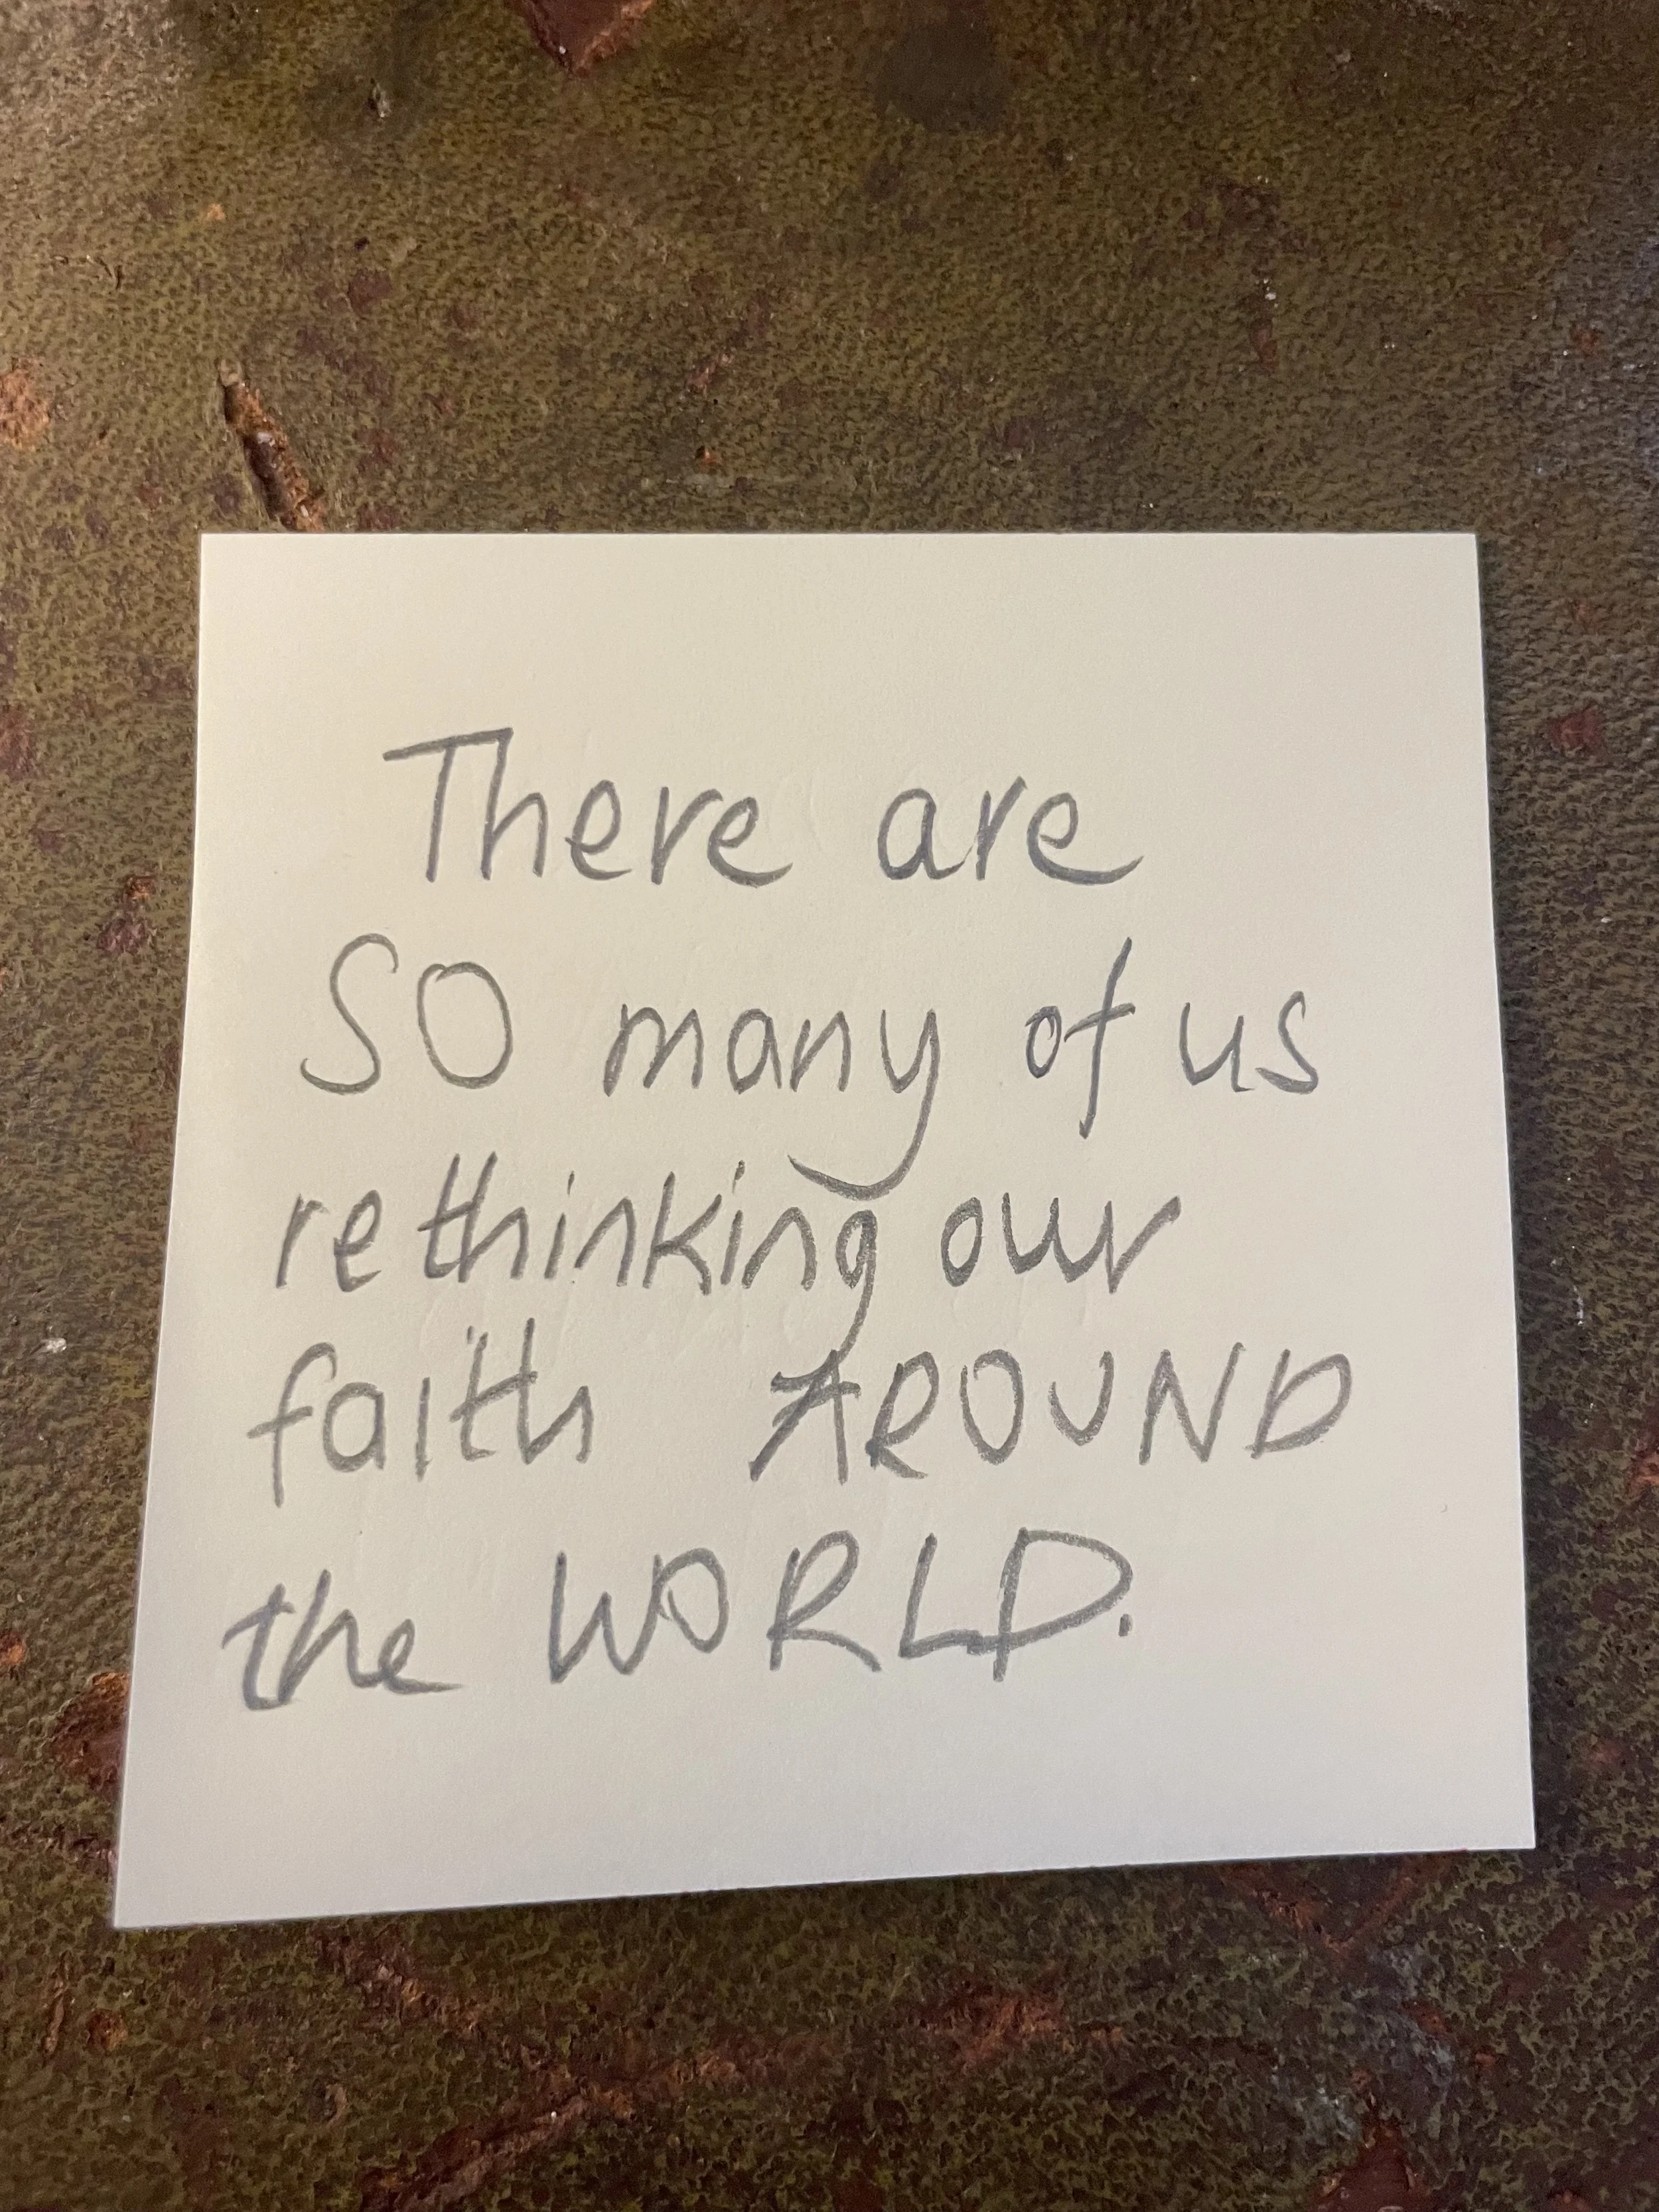 There are
SO many of us
rethinking our
faith AROUND
the WORLD.